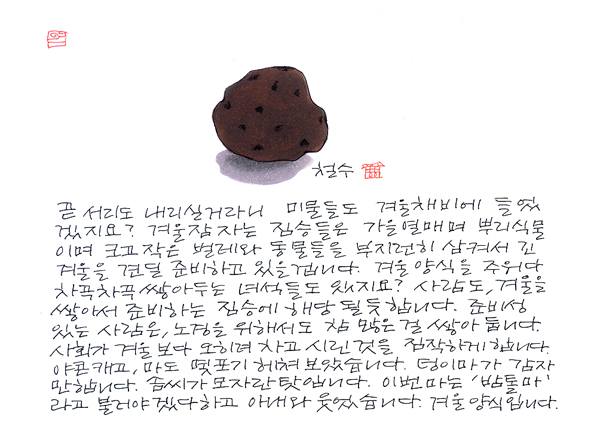 철수
곧 서리도 내리실거라니 미물들도 겨울채비에 들었
겠지요? 겨울잠 자는 짐승들은 가을열매며 뿌리식물
이며 크고 작은 벌레와 동물들을 부지런히 삼켜서 긴
겨울을 견딜 준비하고 있을겁니다. 겨울양식을 주워다
차곡차곡 쌓아두는 녀석들도 있지요? 사람도, 겨울을
쌓아서 준비하는 짐승에 해당 될 듯합니다. 준비성
있는 사람은, 노경을 위해서도 참 많은 걸 쌓아 둡니다.
사회가 겨울보다 오히려 차고 시린 것을 짐작하게 합니다.
야콘 캐고, 마도 몇포기 헤쳐 보았습니다. 덩이마가 감자
만합니다. 솜씨가 모자란 탓입니다. 이번 마는 '밤톨마'
라고 불러야겠다하고 아내와 웃었습니다. 겨울양식입니다.